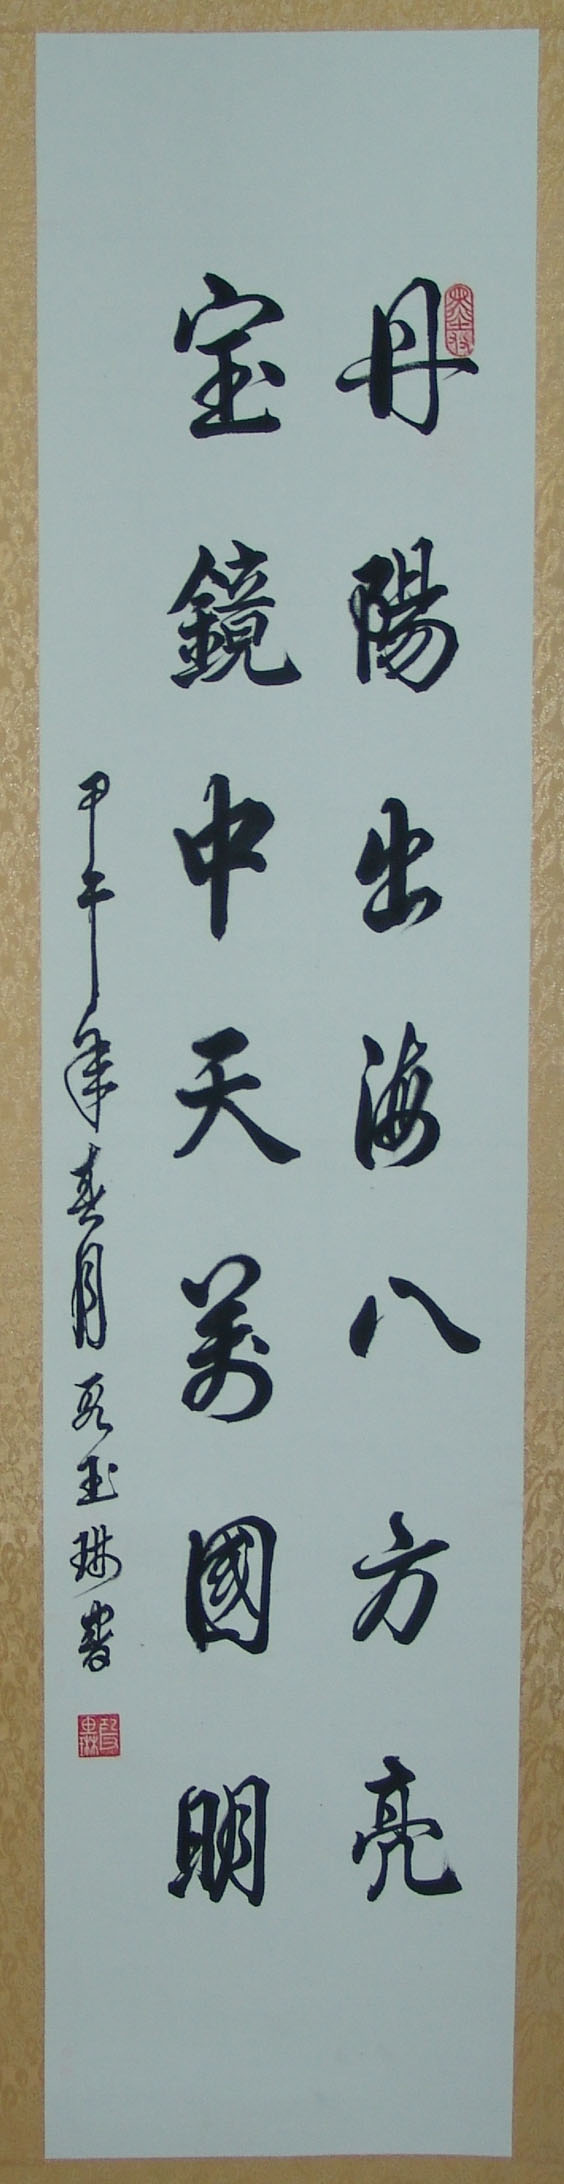 丹陽出海八方亮
宝鏡中天萬國明
甲午年春月段玉琳書